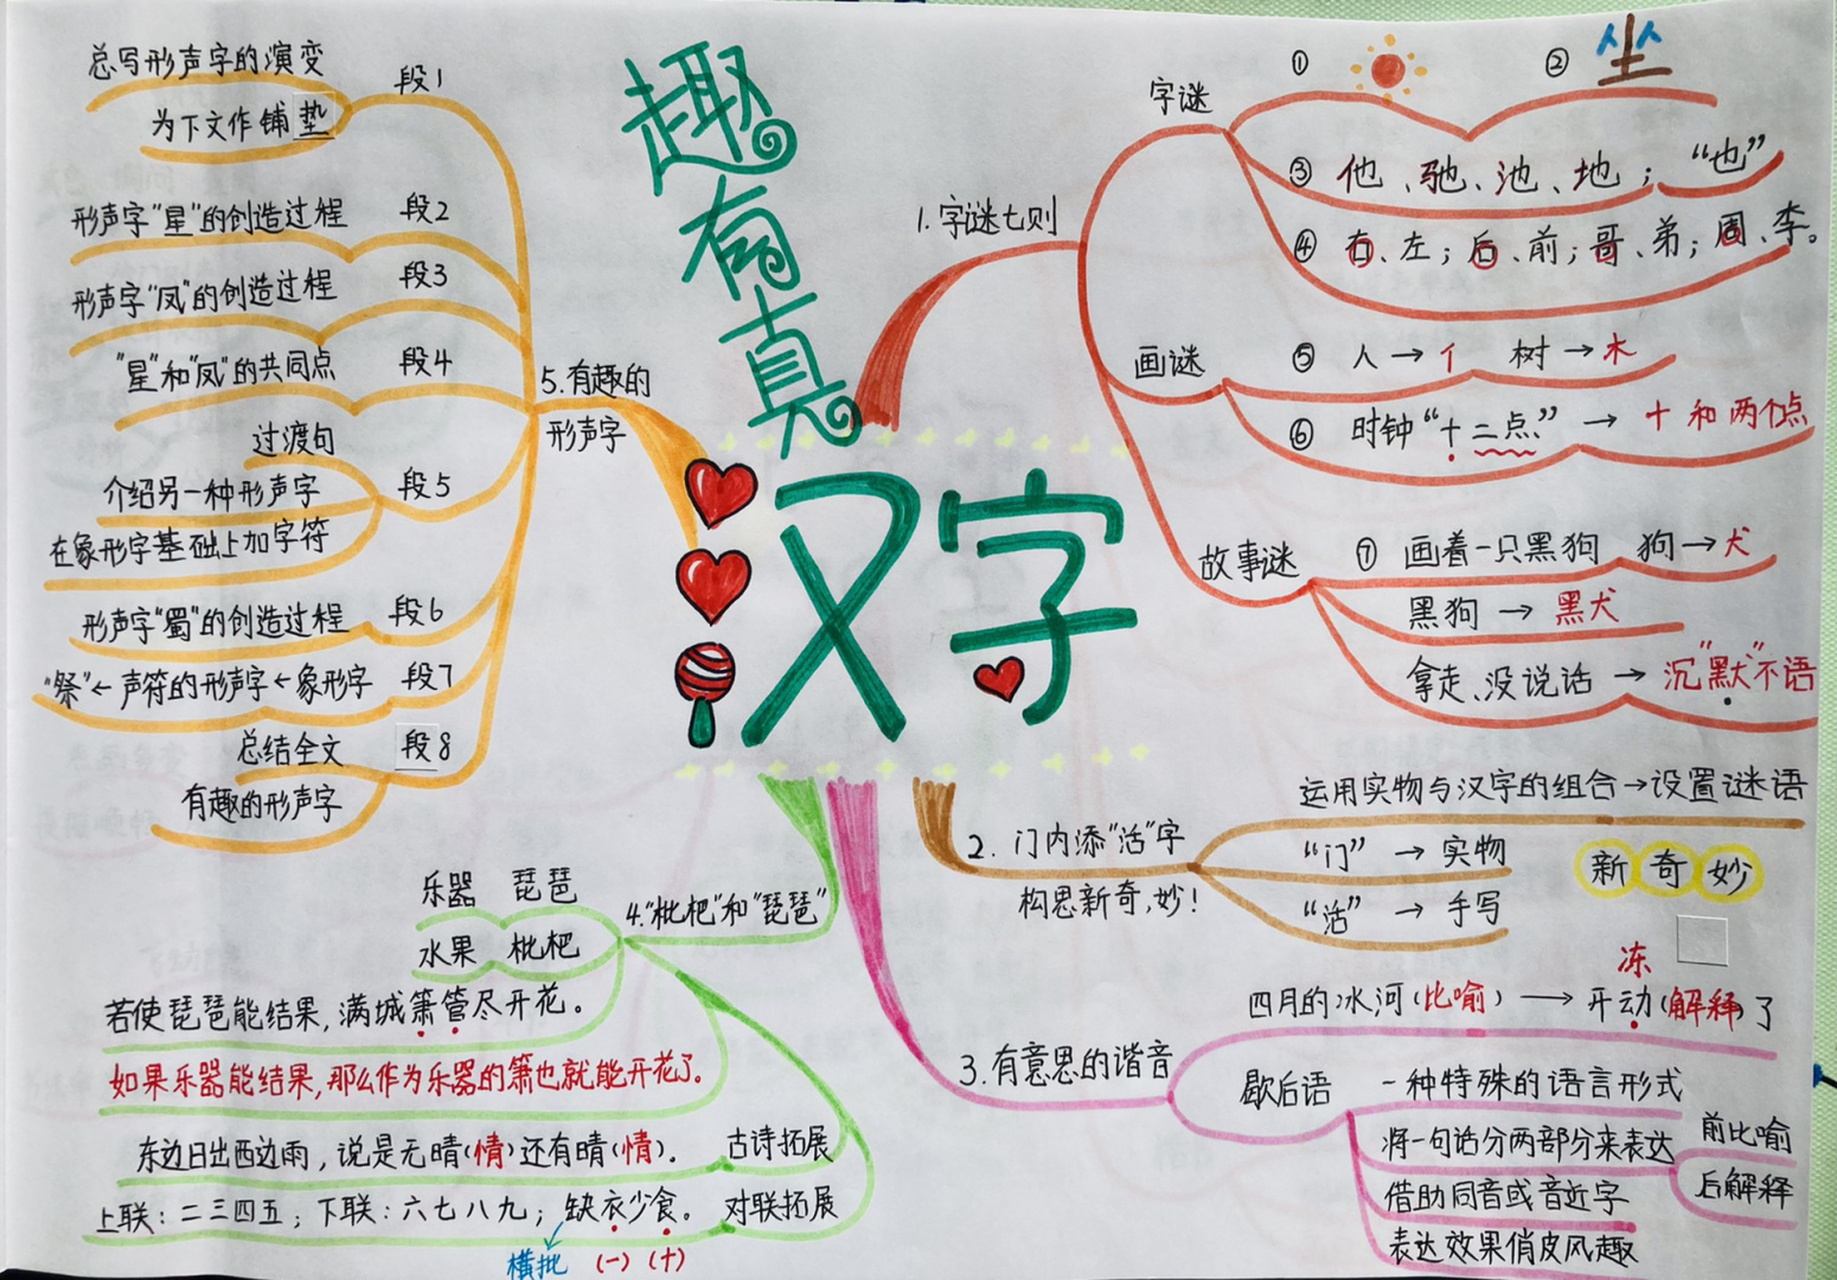 汉字真有趣
1.字谜七则
字谜
① ② 坐
③ 他、驰、池、地；“也”
④ 右、左；后、前；哥、弟；周、李。
画谜
⑤ 人→个 树→木
⑥ 时钟“十二点”→十和两个点
故事谜
⑦ 画着一只黑狗 狗→犬
黑狗→黑犬
拿走、没说话→沉“默”不语
2. 门内添“活”字
构思新奇，妙！
运用实物与汉字的组合→设置谜语
“门”→实物
“活”→手写
新奇妙
3.有意思的谐音
冻
四月的冰河（比喻）→开动（解释）了
歇后语
一种特殊的语言形式
将一句话分两部分来表达
前比喻
后解释
借助同音或音近字
表达效果俏皮风趣
4.“枇杷”和“琵琶”
乐器 琵琶
水果 枇杷
若使琵琶能结果，满城箫管尽开花。
如果乐器能结果，那么作为乐器的箫也就能开花了。
古诗拓展
东边日出西边雨，说是无晴（情）还有晴（情）。
对联拓展
上联：二三四五；下联：六七八九；缺衣少食。
横批 （一）（十）
5.有趣的
形声字
段1
总写形声字的演变
为下文作铺垫
段2
形声字“星”的创造过程
段3
形声字“凤”的创造过程
段4
“星”和“凤”的共同点
段5
过渡句
介绍另一种形声字
在象形字基础上加字符
段6
形声字“蜀”的创造过程
段7
“祭”←声符的形声字←象形字
段8
总结全文
有趣的形声字